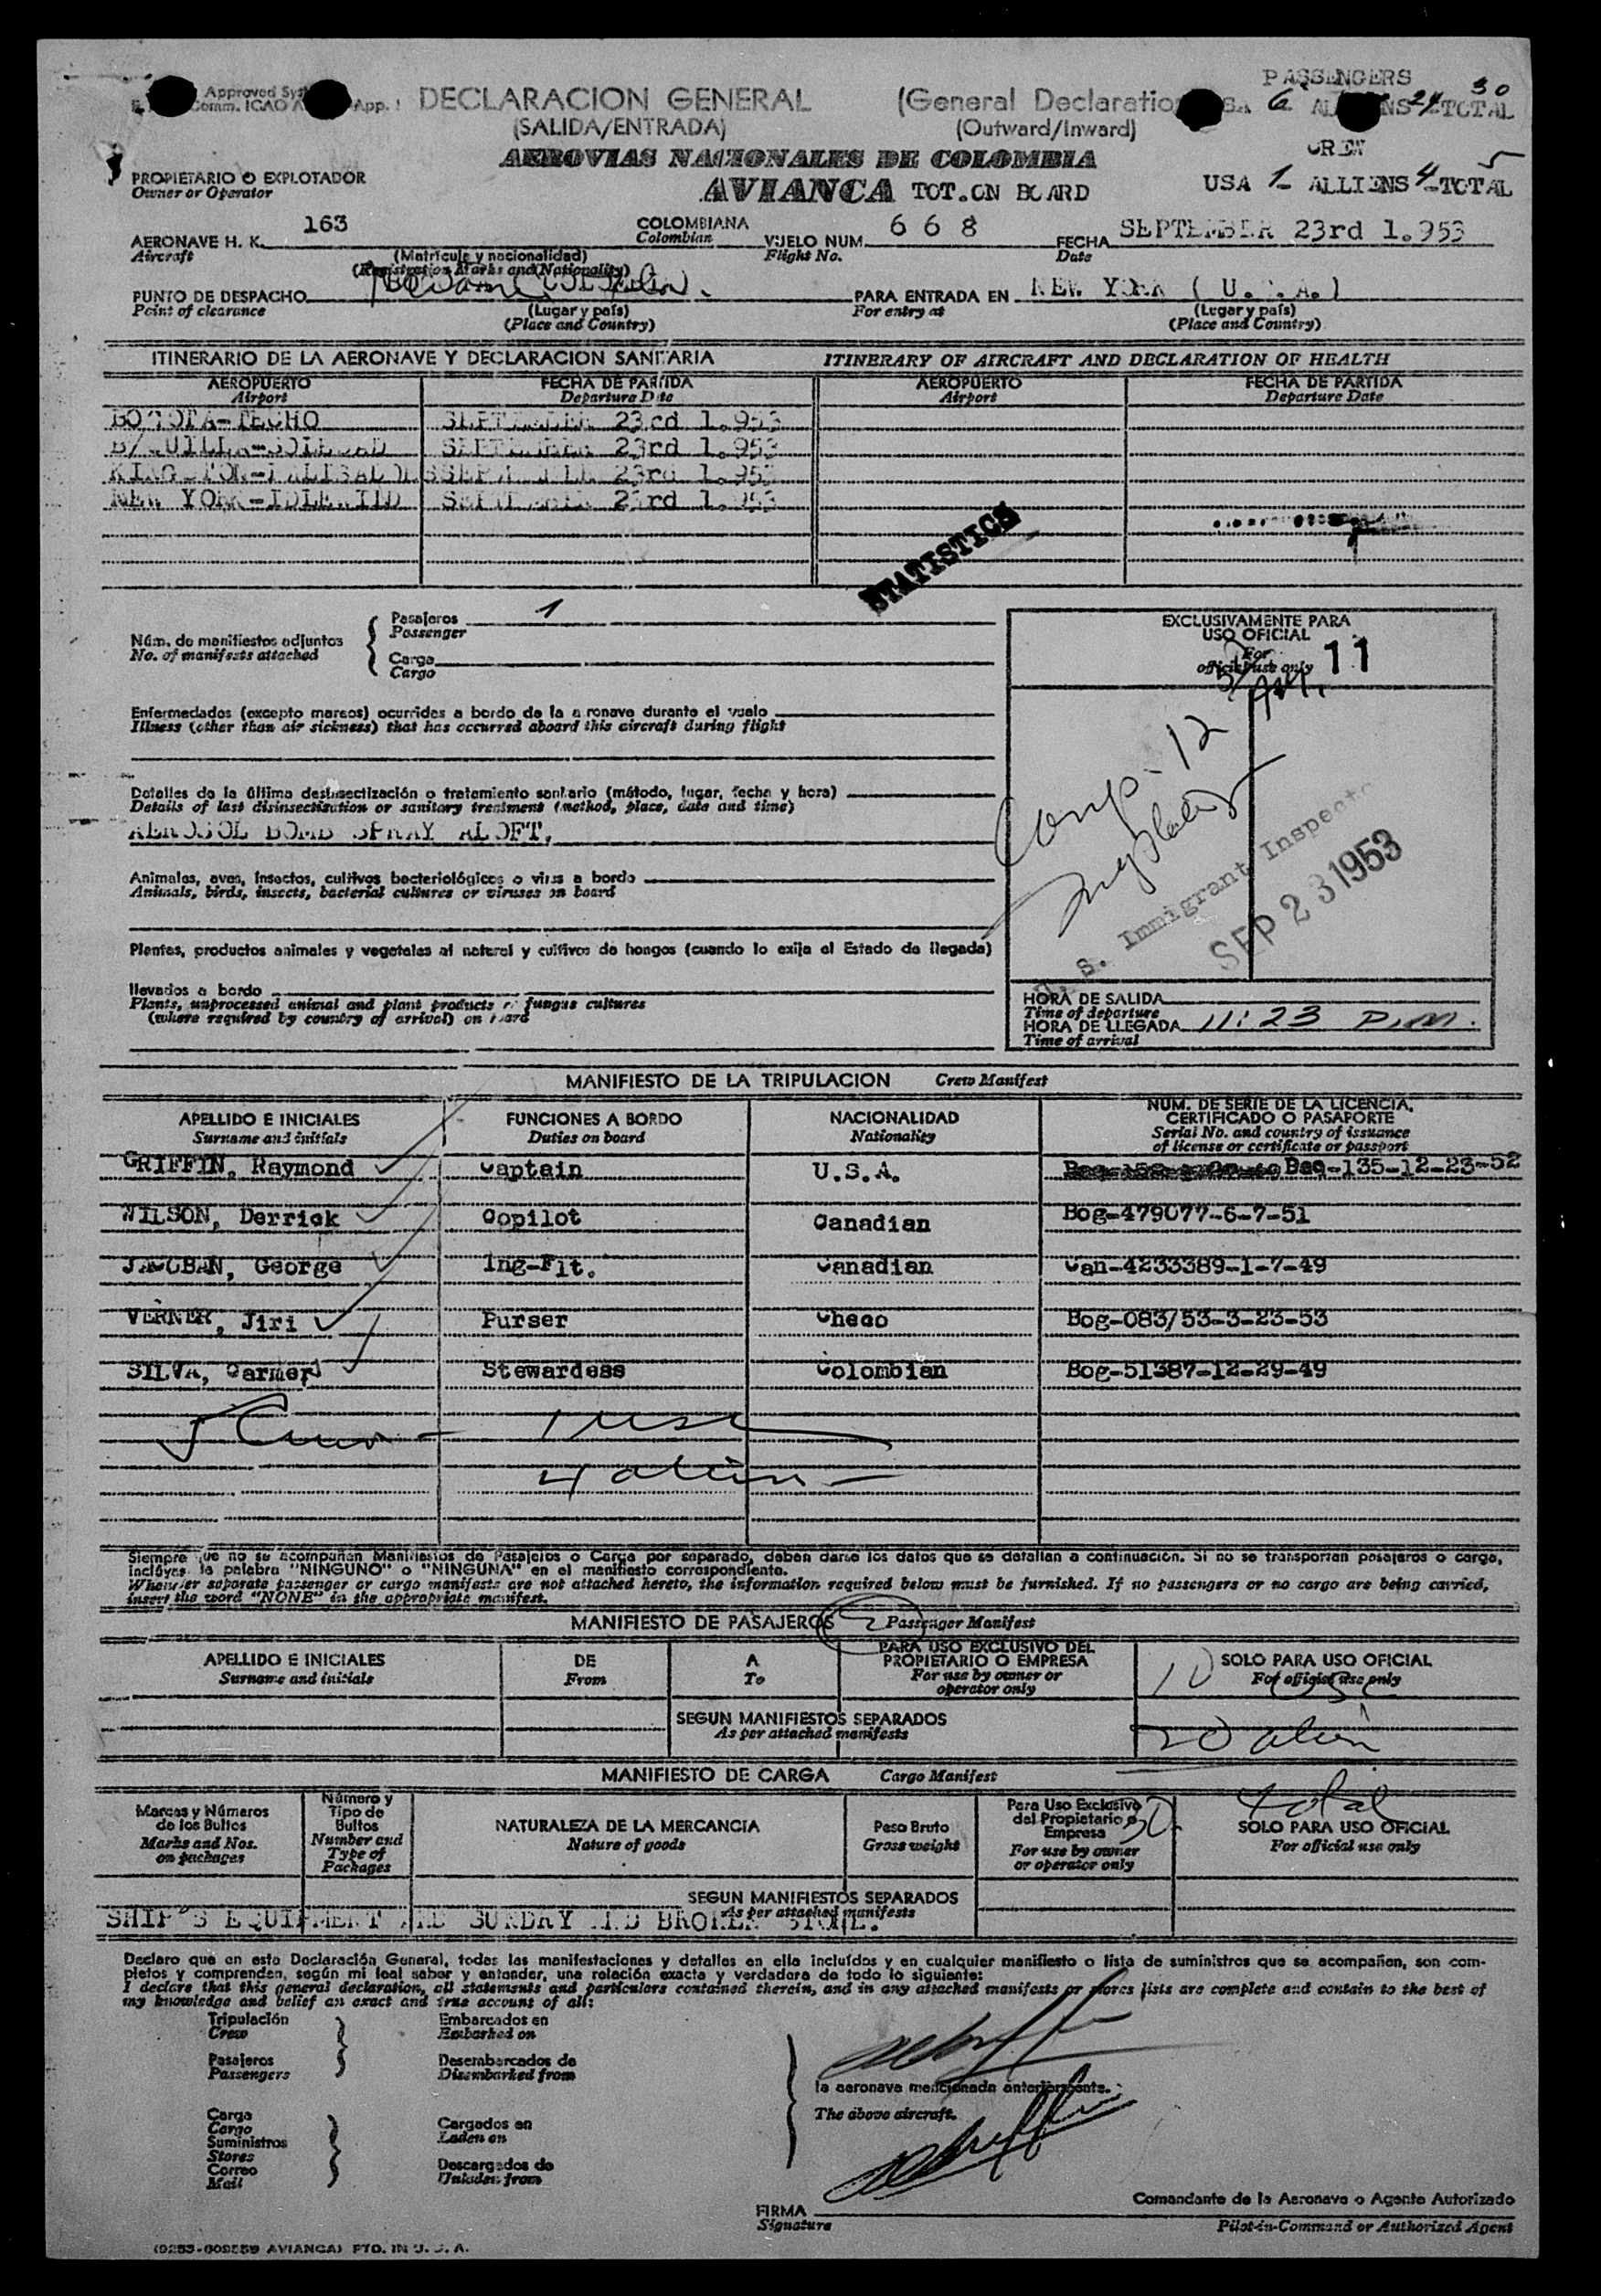 PASSENGERS
Approved
Comm. ICAO App.
DECLARACION GENERAL (General Declaration
6 24 TOTAL 30
(SALIDA/ENTRADA) (Outward/Inward)
CREW
AEROVIAS NACIONALES DE COLOMBIA
PROPIETARIO O EXPLOTADOR
Owner or Operator
AVIANCA TOT.ON BOARD
USA 1- ALLIENS 4-TOTAL 5
AERONAVE H. K. 163 COLOMBIANA VUELO NUM. 668 FECHA SEPTEMBER 23rd 1.953
Aircraft (Matrícula y nacionalidad) Colombian Flight No. Date
(Registration Marks and Nationality)
PUNTO DE DESPACHO PARA ENTRADA EN NEW YORK (U.S.A.)
Point of clearance (Lugar y país) For entry at (Lugar y país)
(Place and Country) (Place and Country)
ITINERARIO DE LA AERONAVE Y DECLARACION SANITARIA ITINERARY OF AIRCRAFT AND DECLARATION OF HEALTH
AEROPUERTO FECHA DE PARTIDA AEROPUERTO FECHA DE PARTIDA
Airport Departure Date Airport Departure Date
BOGOTA-TECHO SEPTEMBER 23rd 1.953
B/QUILLA-SOLEDAD SEPTEMBER 23rd 1.953
KINGSTON-PALISADOES SEPTEMBER 23rd 1.953
NEW YORK-IDLEWILD SEPTEMBER 23rd 1.953
STATISTICS
Núm. de manifiestos adjuntos
No. of manifests attached
Pasajeros 1
Passenger
Carga
Cargo
EXCLUSIVAMENTE PARA
USO OFICIAL
For
official use only 11
Enfermedades (excepto mareos) ocurridas a bordo de la aeronave durante el vuelo
Illness (other than air sickness) that has occurred aboard this aircraft during flight
Detalles de la última desinsectización o tratamiento sanitario (método, lugar, fecha y hora)
Details of last disinsectization or sanitary treatment (method, place, date and time)
AEROSOL BOMB SPRAY ALOFT.
Animales, aves, insectos, cultivos bacteriológicos o virus a bordo
Animals, birds, insects, bacterial cultures or viruses on board
U. S. Immigrant Inspector
SEP 23 1953
Plantas, productos animales y vegetales al natural y cultivos de hongos (cuando lo exija el Estado de llegada)
llevados a bordo
Plants, unprocessed animal and plant products or fungus cultures
(where required by country of arrival) on board
HORA DE SALIDA
Time of departure
HORA DE LLEGADA 11:23 P.M.
Time of arrival
MANIFIESTO DE LA TRIPULACION Crew Manifest
APELLIDO E INICIALES FUNCIONES A BORDO NACIONALIDAD NUM. DE SERIE DE LA LICENCIA, CERTIFICADO O PASAPORTE
Surname and initials Duties on board Nationality Serial No. and country of issuance of license or certificate or passport
GRIFFIN, Raymond Captain U.S.A. Baq-135-12-23-52
WILSON, Derrick Copilot Canadian Bog-479077-6-7-51
JACOBAN, George Ing-Flt. Canadian Can-4233389-1-7-49
VERNER, Jiri Purser Checo Bog-083/53-3-23-53
SILVA, Carmen Stewardess Colombian Bog-51387-12-29-49
5 Crew - 1 USC
4 alien -
Siempre que no se acompañen Manifiestos de Pasajeros o Carga por separado, deben darse los datos que se detallan a continuación. Si no se transportan pasajeros o carga,
inclúyase la palabra "NINGUNO" o "NINGUNA" en el manifiesto correspondiente.
Whenever separate passenger or cargo manifests are not attached hereto, the information required below must be furnished. If no passengers or no cargo are being carried,
insert the word "NONE" in the appropriate manifest.
MANIFIESTO DE PASAJEROS 2 Passenger Manifest
APELLIDO E INICIALES DE A PARA USO EXCLUSIVO DEL PROPIETARIO O EMPRESA SOLO PARA USO OFICIAL
Surname and initials From To For use by owner or operator only For official use only
10 USC
SEGUN MANIFIESTOS SEPARADOS
As per attached manifests
20 alien
MANIFIESTO DE CARGA Cargo Manifest
30 total
Marcas y Números de los Bultos Número y Tipo de Bultos NATURALEZA DE LA MERCANCIA Peso Bruto Para Uso Exclusivo del Propietario o Empresa SOLO PARA USO OFICIAL
Marks and Nos. on packages Number and Type of Packages Nature of goods Gross weight For use by owner or operator only For official use only
SEGUN MANIFIESTOS SEPARADOS
As per attached manifests
SHIP'S EQUIPMENT AND SUNDRY AND BROKEN STORE.
Declaro que en esta Declaración General, todas las manifestaciones y detalles en ella incluídos y en cualquier manifiesto o lista de suministros que se acompañen, son com-
pletos y comprenden, según mi leal saber y entender, una relación exacta y verdadera de todo lo siguiente:
I declare that this general declaration, all statements and particulars contained therein, and in any attached manifests or stores lists are complete and contain to the best of
my knowledge and belief an exact and true account of all:
Tripulación Embarcados en
Crew Embarked on
Pasajeros Desembarcados de
Passengers Disembarked from
la aeronave mencionada anteriormente.
The above aircraft.
Carga
Cargo Cargados en
Suministros Laden on
Stores
Correo Descargados de
Mail Unladen from
FIRMA
Signature
Comandante de la Aeronave o Agente Autorizado
Pilot-in-Command or Authorized Agent
AVIANCA) PTD. IN U. S. A.